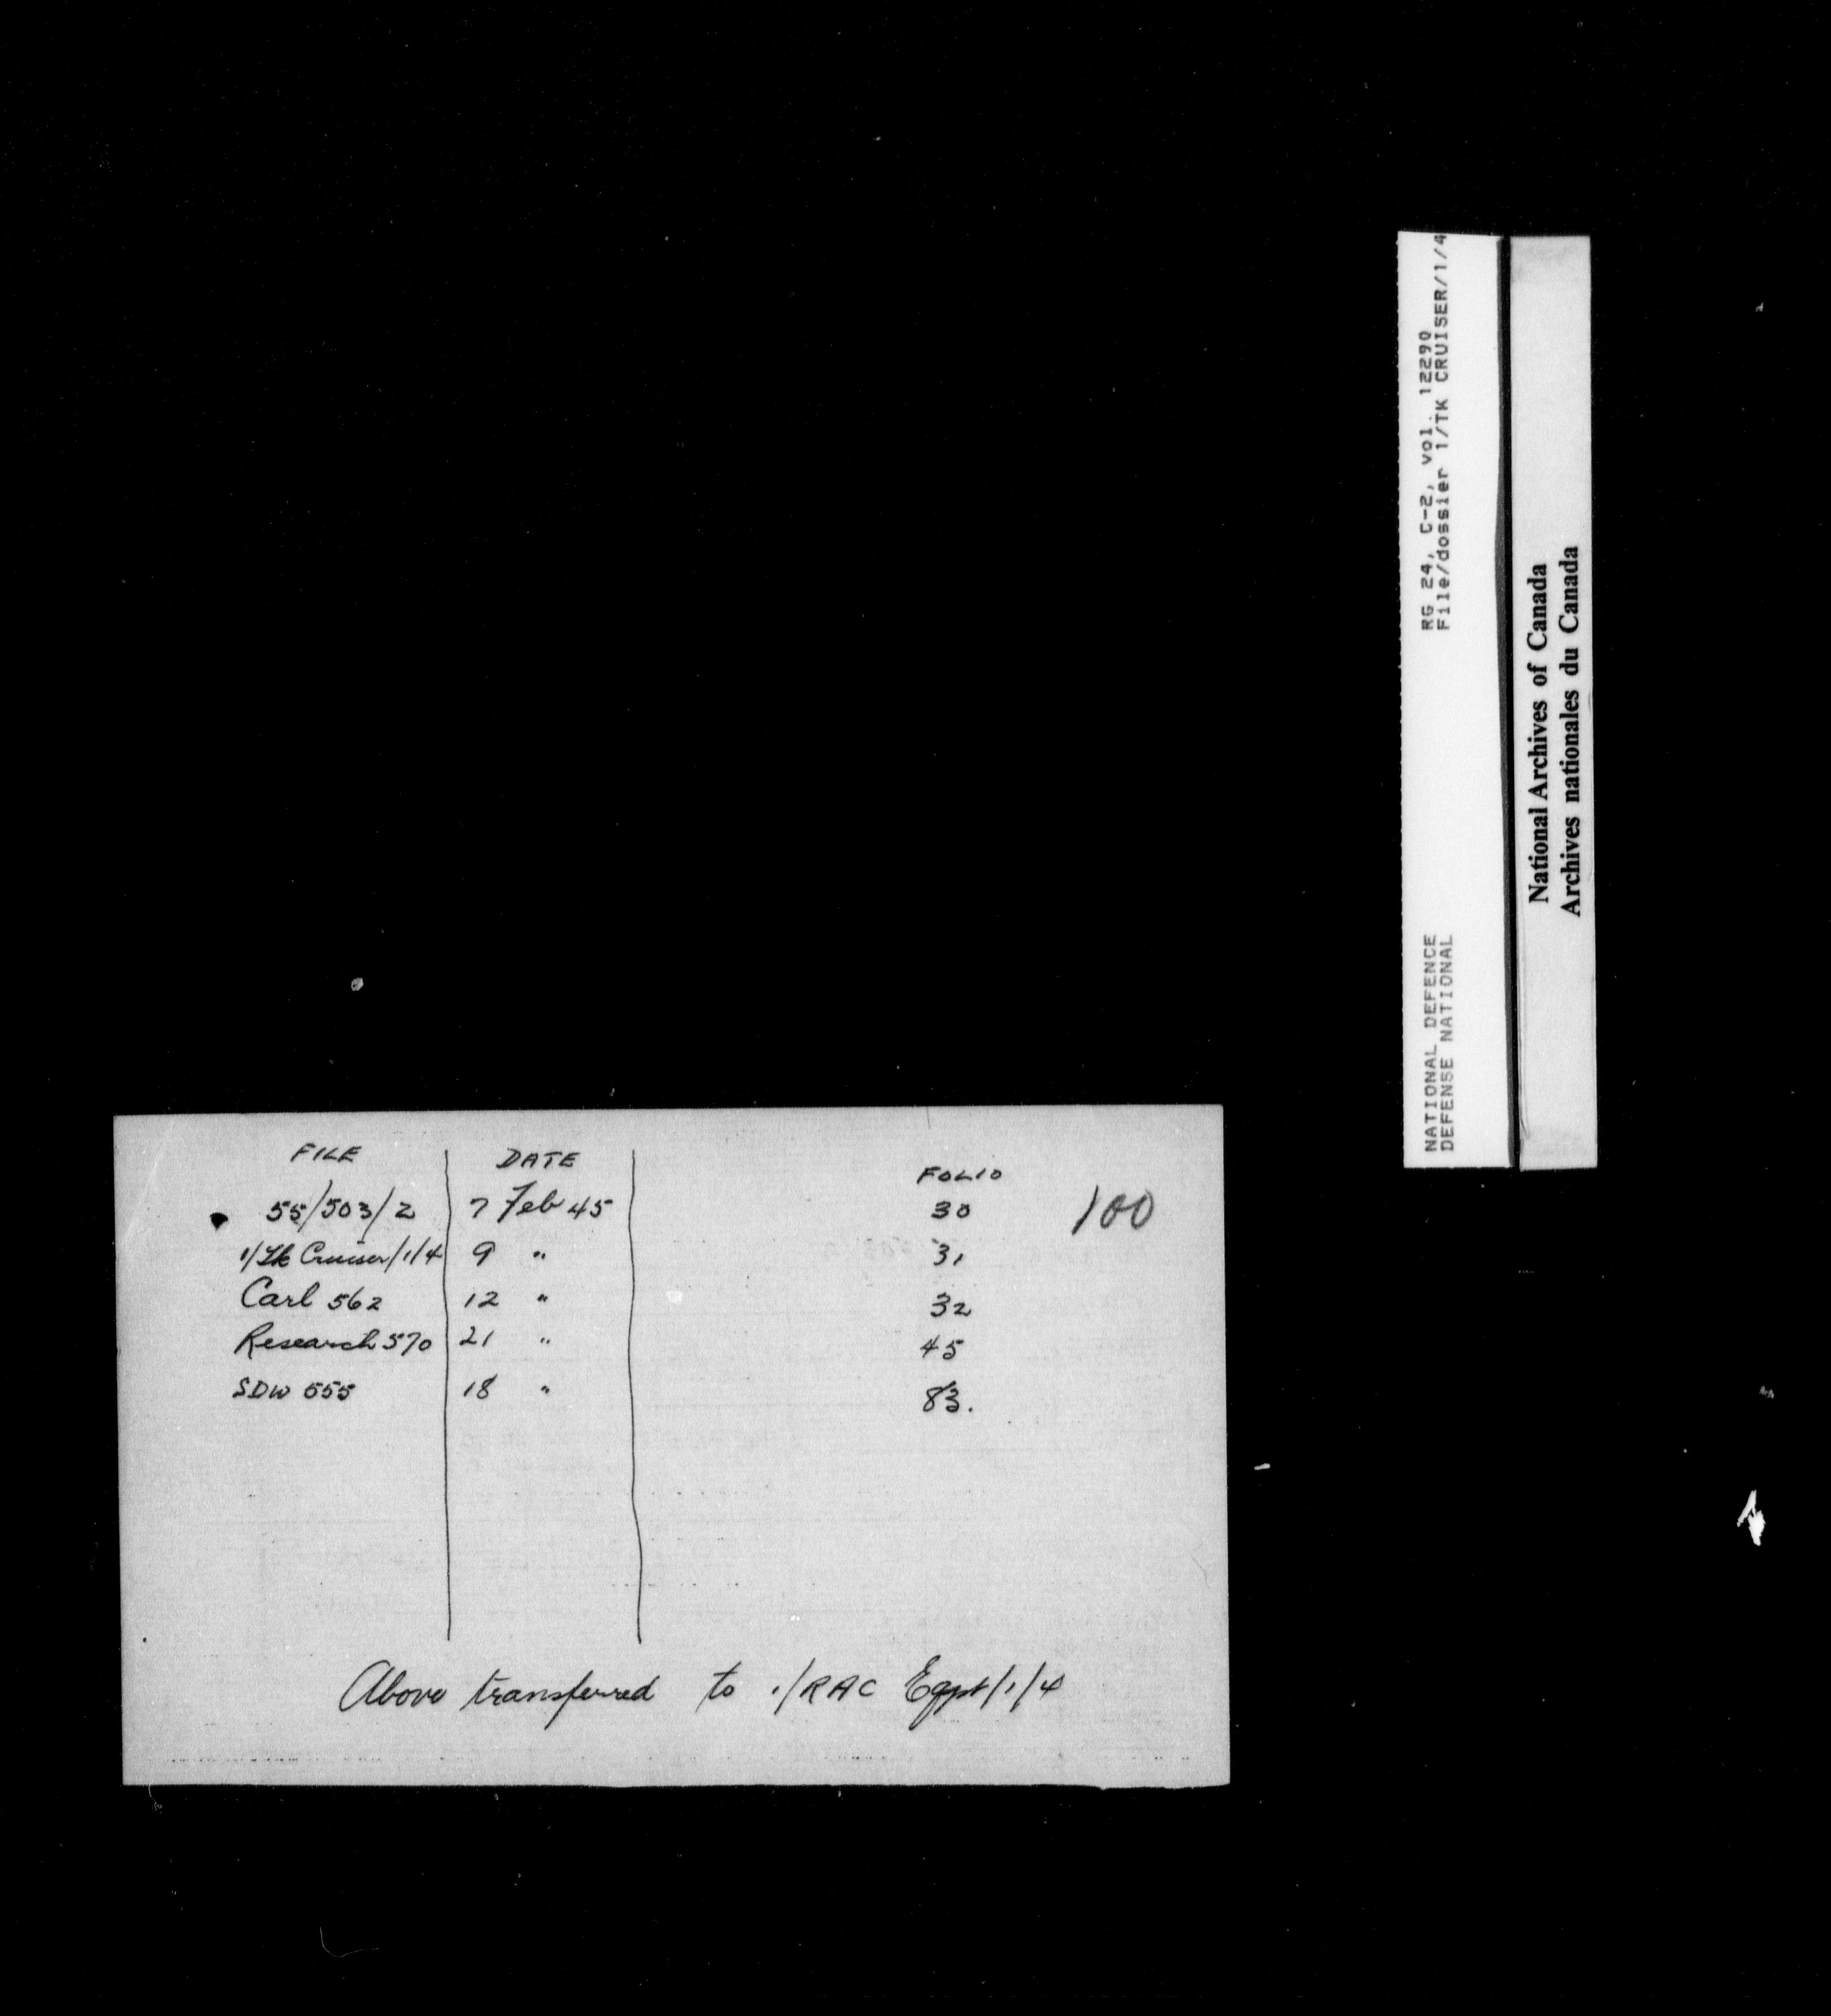 FILE DATE FOLIO
55/503/2 7 Feb 45 30 100
1/Tk Cruiser/1/4 9 " 31
Carl 562 12 " 32
Research 570 21 " 45
SDW 555 18 " 83.
Above transferred to 1/RAC Eqpt/1/4
NATIONAL DEFENCE RG 24, C-2, vol. 12290
DEFENSE NATIONAL File/dossier 1/TK CRUISER/1/4
National Archives of Canada
Archives nationales du Canada